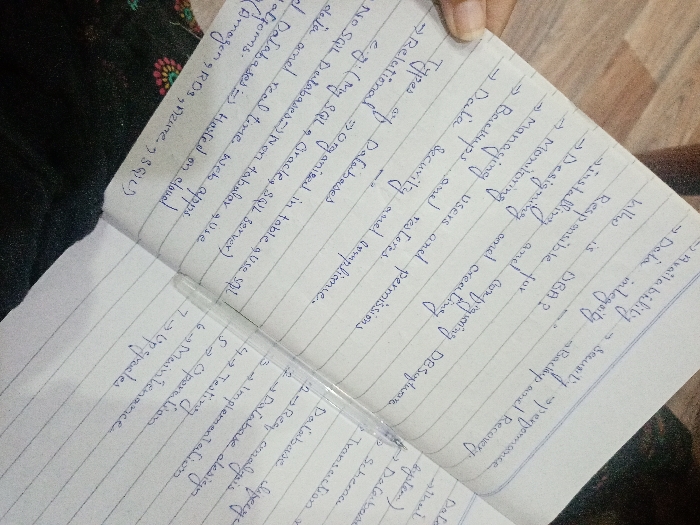 → Availability → Security → performance
→ Data integrity → Backup and Recovery
Who is DBA?
Responsible for
→ installing and configuring DB system
→ Designing and creating
→ Monitoring
→ Managing users and permissions
→ Backups and restores
→ Data Security and compliance.
Types of Databases
→ Relational → Organized in table, use SQL
e.g (My SQL, Oracle, SQL Server)
No SQL Databases ⇒ Non tabular, use
data and real time web apps
Databases ⇒ Hosted on cloud
(Amazon, RDS, Azure → SQL)
System)
→ Database
Schema
Transaction
Database
→ Req analysis
→ Database design
3 → Implementation
4 → Testing
5 → Operation
6 → Maintenance
7 → Upgrades